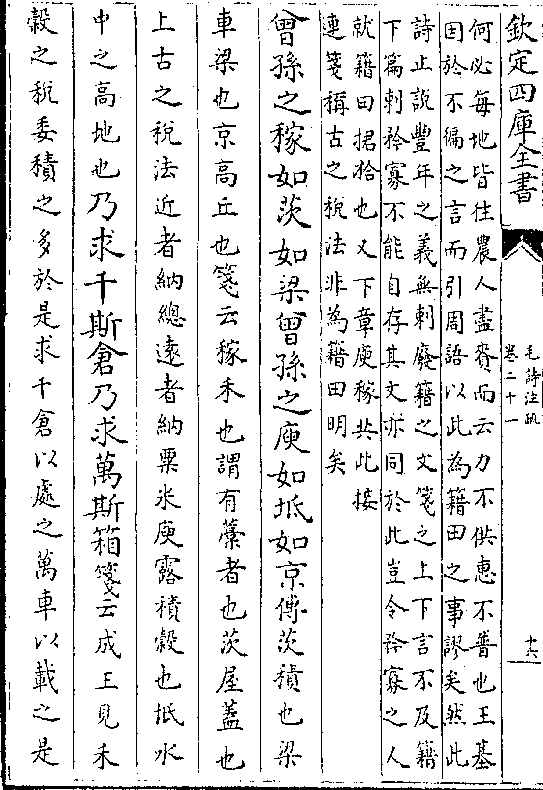 欽定四庫全書
毛詩注疏
卷二十一
十六
何必每地皆往農人盡賚而云力不供惠不普也王基
困於不徧之言而引周語以此為籍田之事謬矣然此
詩止説豐年之義無刺廢籍之文箋之上下言不及籍
下篇刺矜寡不能自存其文亦同於此豈令矜寡之人
就籍田捃拾也又下章庾稼共此接
連箋稱古之税法非為籍田明矣
曾孫之稼如茨如梁曾孫之庾如坻如京傳茨積也梁
車梁也京高丘也箋云稼禾也謂有藁者也茨屋蓋也
上古之税法近者納總遠者納粟米庾露積穀也坻水
中之高地也乃求千斯倉乃求萬斯箱箋云成王見禾
穀之税委積之多於是求千倉以處之萬車以載之是